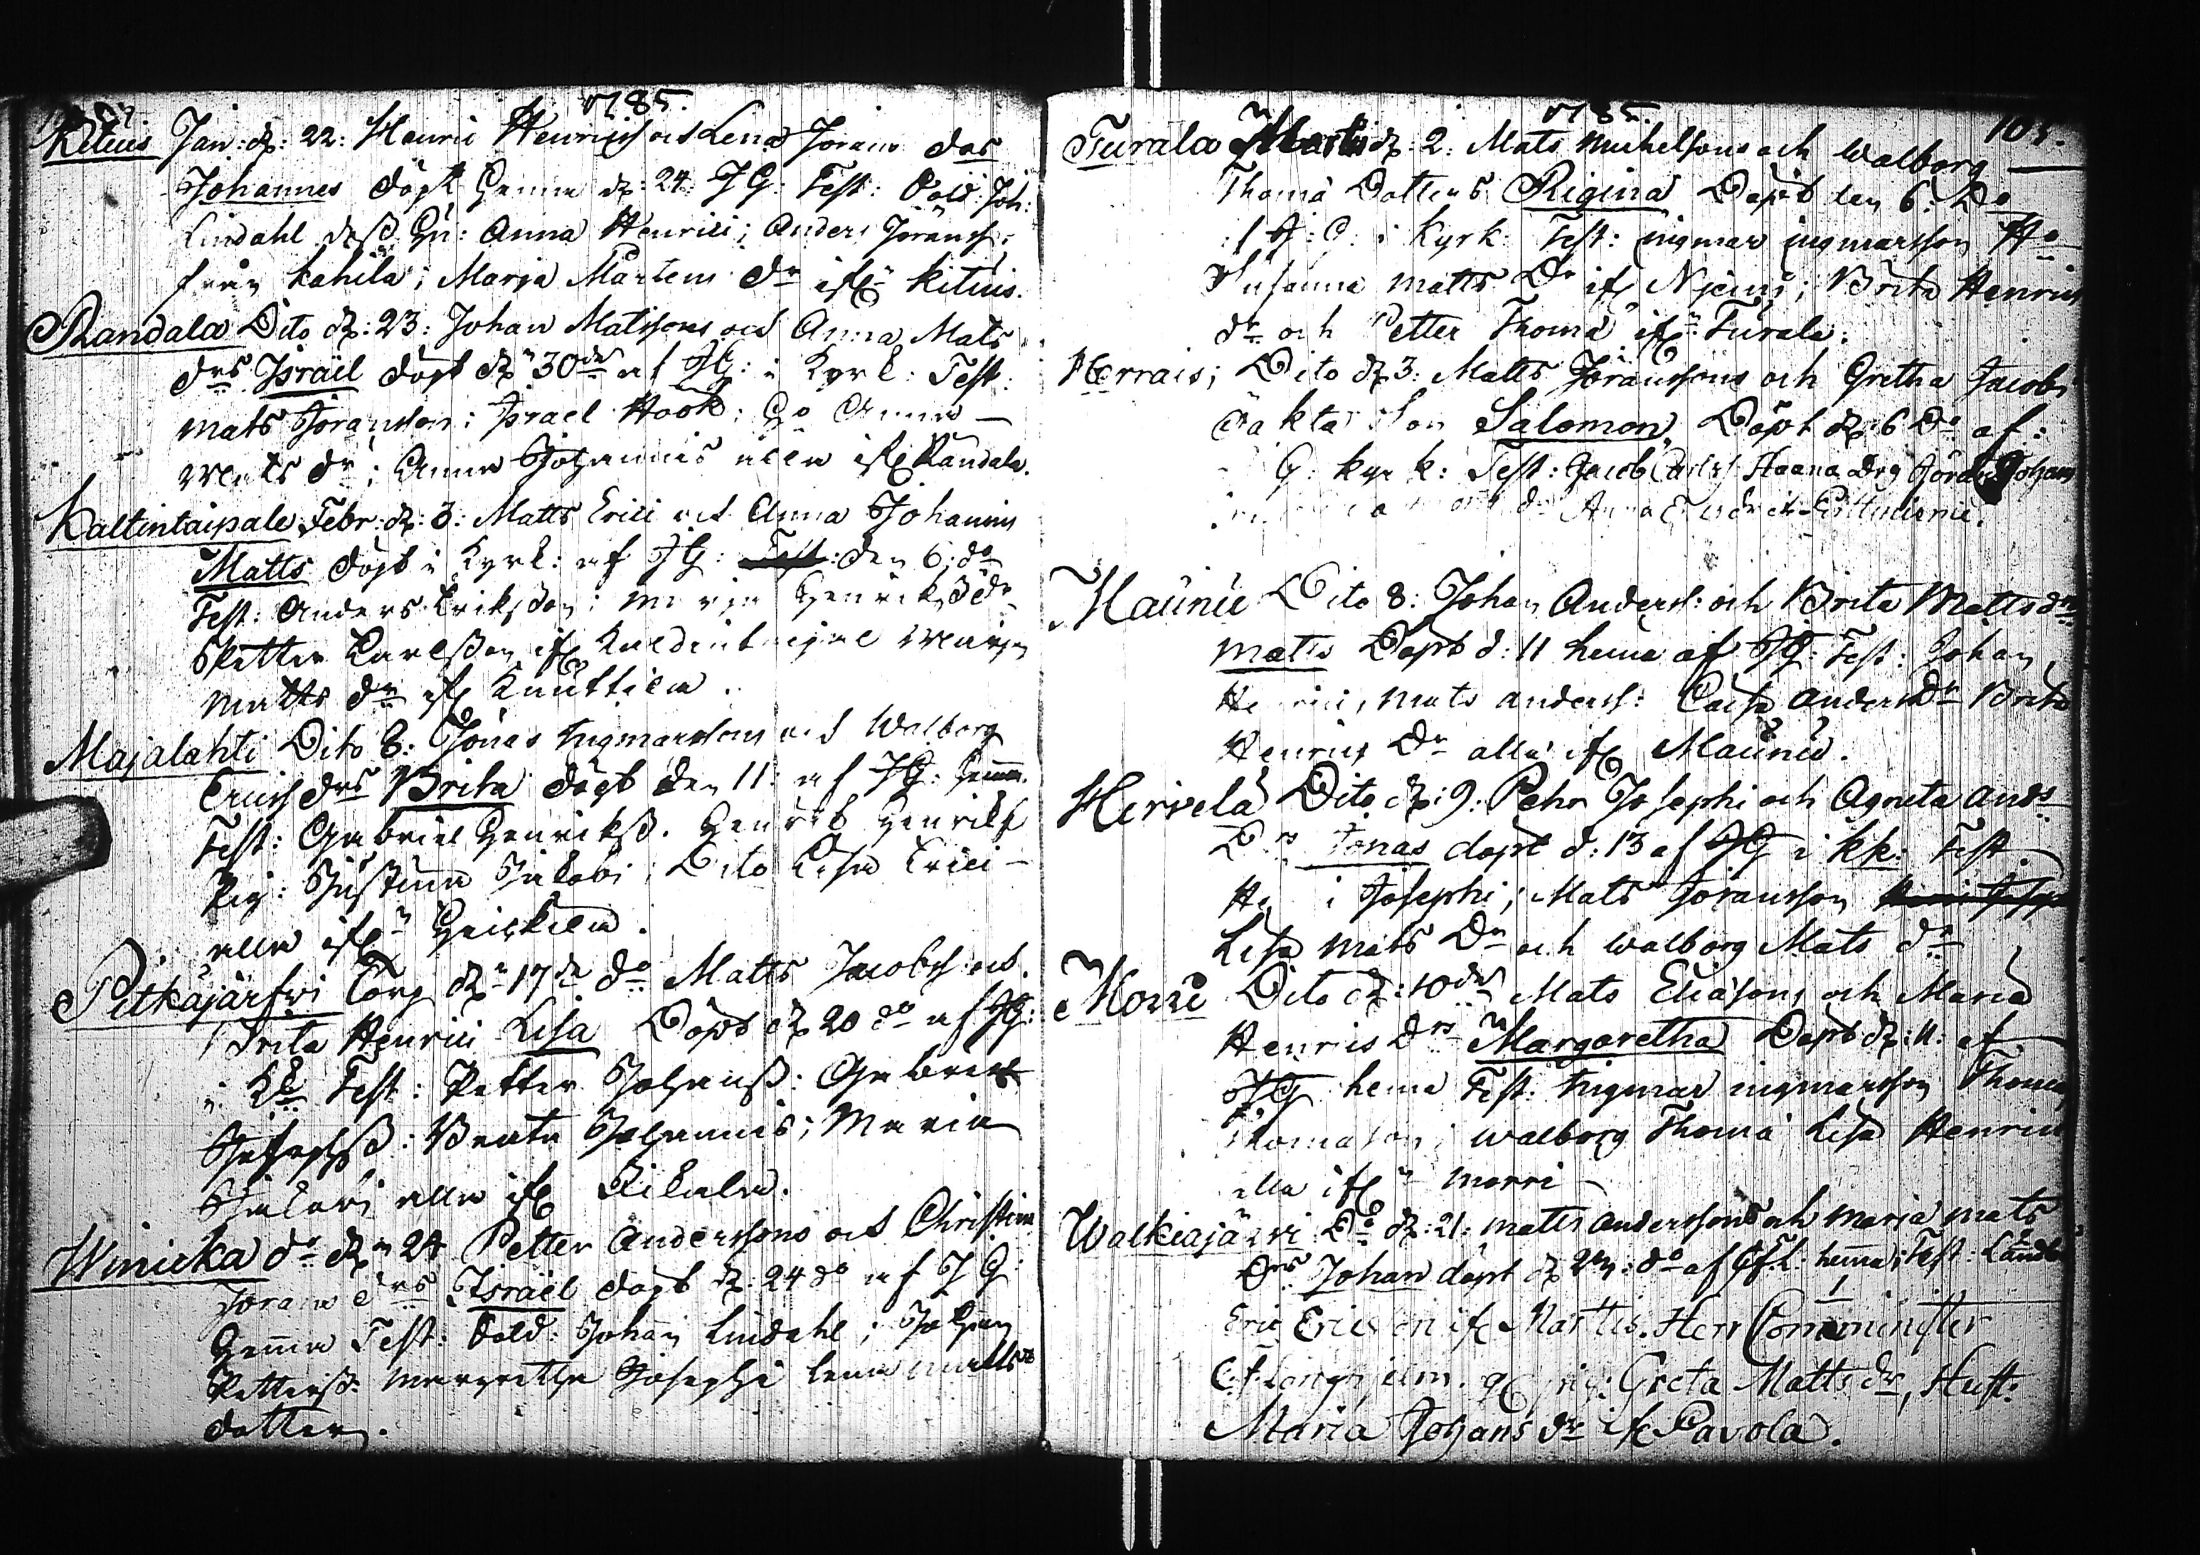 1785.
Kitius Jan: d: 22: Henric Henricss och Lena Jörans drs
Johannes döpt hemma d: 24: JG: Test: Sold: Joh:
Lindahl dess hu: Anna Henrici; Anders Jöranss:
från Kahila; Marja Mårtens dr ifr Kitius.
Randala Dito d: 23: Johan Matssons och Anna Mats
drs Israël döpt dn 30de af JG: i Kyrk: Test:
Mats Joransson: Israel Hook: Anna
Mats dr; Anna Johannis alla ifr Randala.
Kaltintaipale Febr: d: 3: Matts Erici och Anna Johannis
Matts döpt i Kyrk: af JG: Test: den 6: do
Test: Anders Eriksson; Maria Henriks dr
Petter Karlsson ifr Kaldintaipale Marja
Matts dr ifr Knuttila.
Majalahti Dito 8: Jonas Ingmarssons och Walborg
Ericss drs Brita döpt den 11: af JG: hemma.
Test: Gabriel Henrikss. Henrik Henrikss
Pig: Justina Jakobi; Dito Lisa Erici
alla ifrn Heickilä.
Pitkäjärfwi Torp dn 17de do Matts Jacobss och
Brita Henrici Lisa Döpt d 20 do af JG:
i Kk Test: Petter Johanss: Gabriel
Josephss: Beata Johannis; Maria
Jakobi alla ifr Kikala.
Winicka do dn 24 Petter Anderssons och Christina
Jörans drs Israël döpt d: 24 do af JG:
hemma Test: Sold: Johan Lindahl; Johan
Petterss: Margretha Josephi Lena Matts
dotter.
1785. 105.
Turala Marti d: 2: Mats Michelsons och Walborg
Thomä Dotters Rigina Döpt den 6: Do
af J: G: i Kyrk: Test: Ingmar Ingmarsson Ho
Susanna Matts Dr ifr Njemi; Brita Henrics
dr och Petter Thomä ifrn Turala.
Herrais; Dito d 3: Matts Jöranssons och Gretha Jacobs
äkta Son Salomon Döpt d: 6 Do af:
G: kyrk: Test: Jacob Carlss Haana Drg Jöran Johans
dr Anna
Maunu Dito 8: Johan Anderss: och Brita Matts dr
Mats Döpt d: 11 hema af JG: Test: Johan
Henrici, Mats Anderss: Caisa Anders Dr Brita
Henrics Dr alla ifr Maunu.
Hervela Dito d: 9: Pehr Josephi och Agneta Ands
Drs Jonas döpt d: 13 af JG i kk: Test
He i Josephi; Mats Joransson
Lisa Mats Dr och Walborg Mats dr
Morri Dito d: 10de Mats Eliasons och Maria
Henrics Drs Margaretha Döpt d: 11: af
JG hema Test: Ingmar Ingmarsson Thomas
Thomason; Walborg Thomä Lisa Henrics
alla ifrn Morri
Walkiajärvi Do d: 21: Mats Anderssons och Marja Mats
Drs Johan döpt d 27: do af CFL: hemma; Test: Landb
Eric Ericson ifr Martis. Herr Comminister
C: F: Longhjelm. pig: Greta Matts dr, Hust:
Maria Johans dr ifr Pavola.